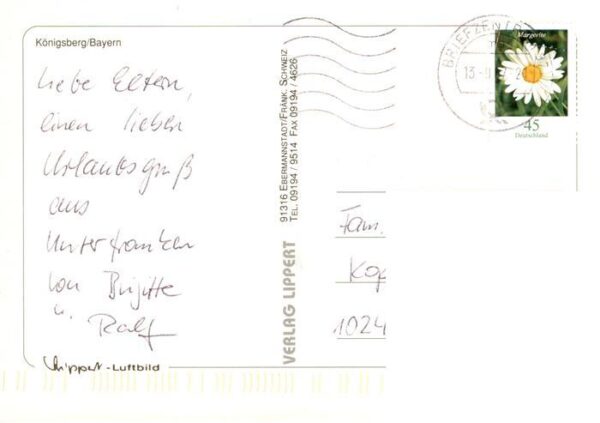 Königsberg/Bayern
Liebe Eltern,
einen lieben
Urlaubsgruß
aus
Unterfranken
von Brigitte
u. Ralf
Lippert-Luftbild
VERLAG LIPPERT
91316 EBERMANNSTADT/FRÄNK. SCHWEIZ
TEL. 09194 / 9514 FAX 09194 / 4626
BRIEFZENTR
13
Margerite
45
Deutschland
Fam.
Kop
1024